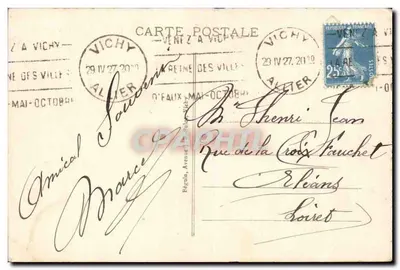 CARTE POSTALE
VENEZ A VICHY
Z A VICHY
VICHY
29 IV 27. 20
ALLIER
REINE DES VILLES
NE DES VILLES
D'EAUX MAI-OCTOBRE
MAI-OCTOBRE
VICHY
29 IV 27. 20
ALLIER
25
Amical Souvenir
Marcel
Mr Henri Jean
Rue de la Croix Fauchet
Orléans
Loiret